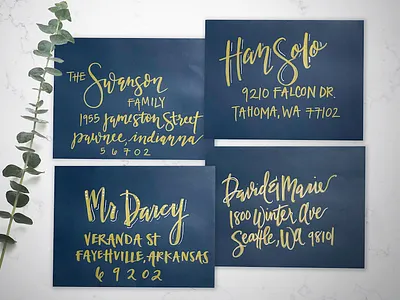 THE Swanson
FAMILY
1955 Jameston Street
Pawnee, indianna
56702
Han Solo
9210 FALCON DR.
TAHOMA, WA 77102
Mr Darcy
VERANDA ST
FAYEHVILLE, ARKANSAS
69202
David & Marie
1800 Winter Ave
Seattle, WA 98101